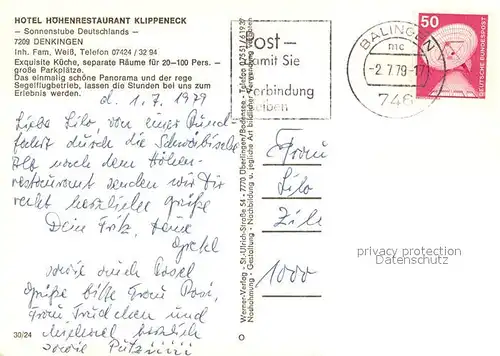 HOTEL HÖHENRESTAURANT KLIPPENECK
— Sonnenstube Deutschlands —
7209 DENKINGEN
Inh. Fam. Weiß, Telefon 07424 / 32 94
Exquisite Küche, separate Räume für 20—100 Pers. —
große Parkplätze.
Das einmalig schöne Panorama und der rege
Segelflugbetrieb, lassen die Stunden bei uns zum
Erlebnis werden.
d. 1.7.1979
Liebe Lilo von einer Rund-
fahrt durch die Schwäbische
Alb nach dem Höhen-
restaurant senden wir Dir
recht herzliche Grüße
Dein Fritz, Deine
Gretel
sowie auch
Grüße bitte Frau
Frau Frudchen und
herzlich
sowie
30/24
Werner-Verlag - St.-Ulrich-Straße 54 - 7770 Überlingen/Bodensee - Telefon 07551/61937
Nachahmung - Gestaltung - Nachbildung u. jegliche Art bildlicher Verwendung verboten
Post—
damit Sie
in
Verbindung
bleiben
BALINGEN
mc
-2.7.79-17
746
50
DEUTSCHE BUNDESPOST
Frau
Lilo
1000
privacy protection
www.delcampe.net